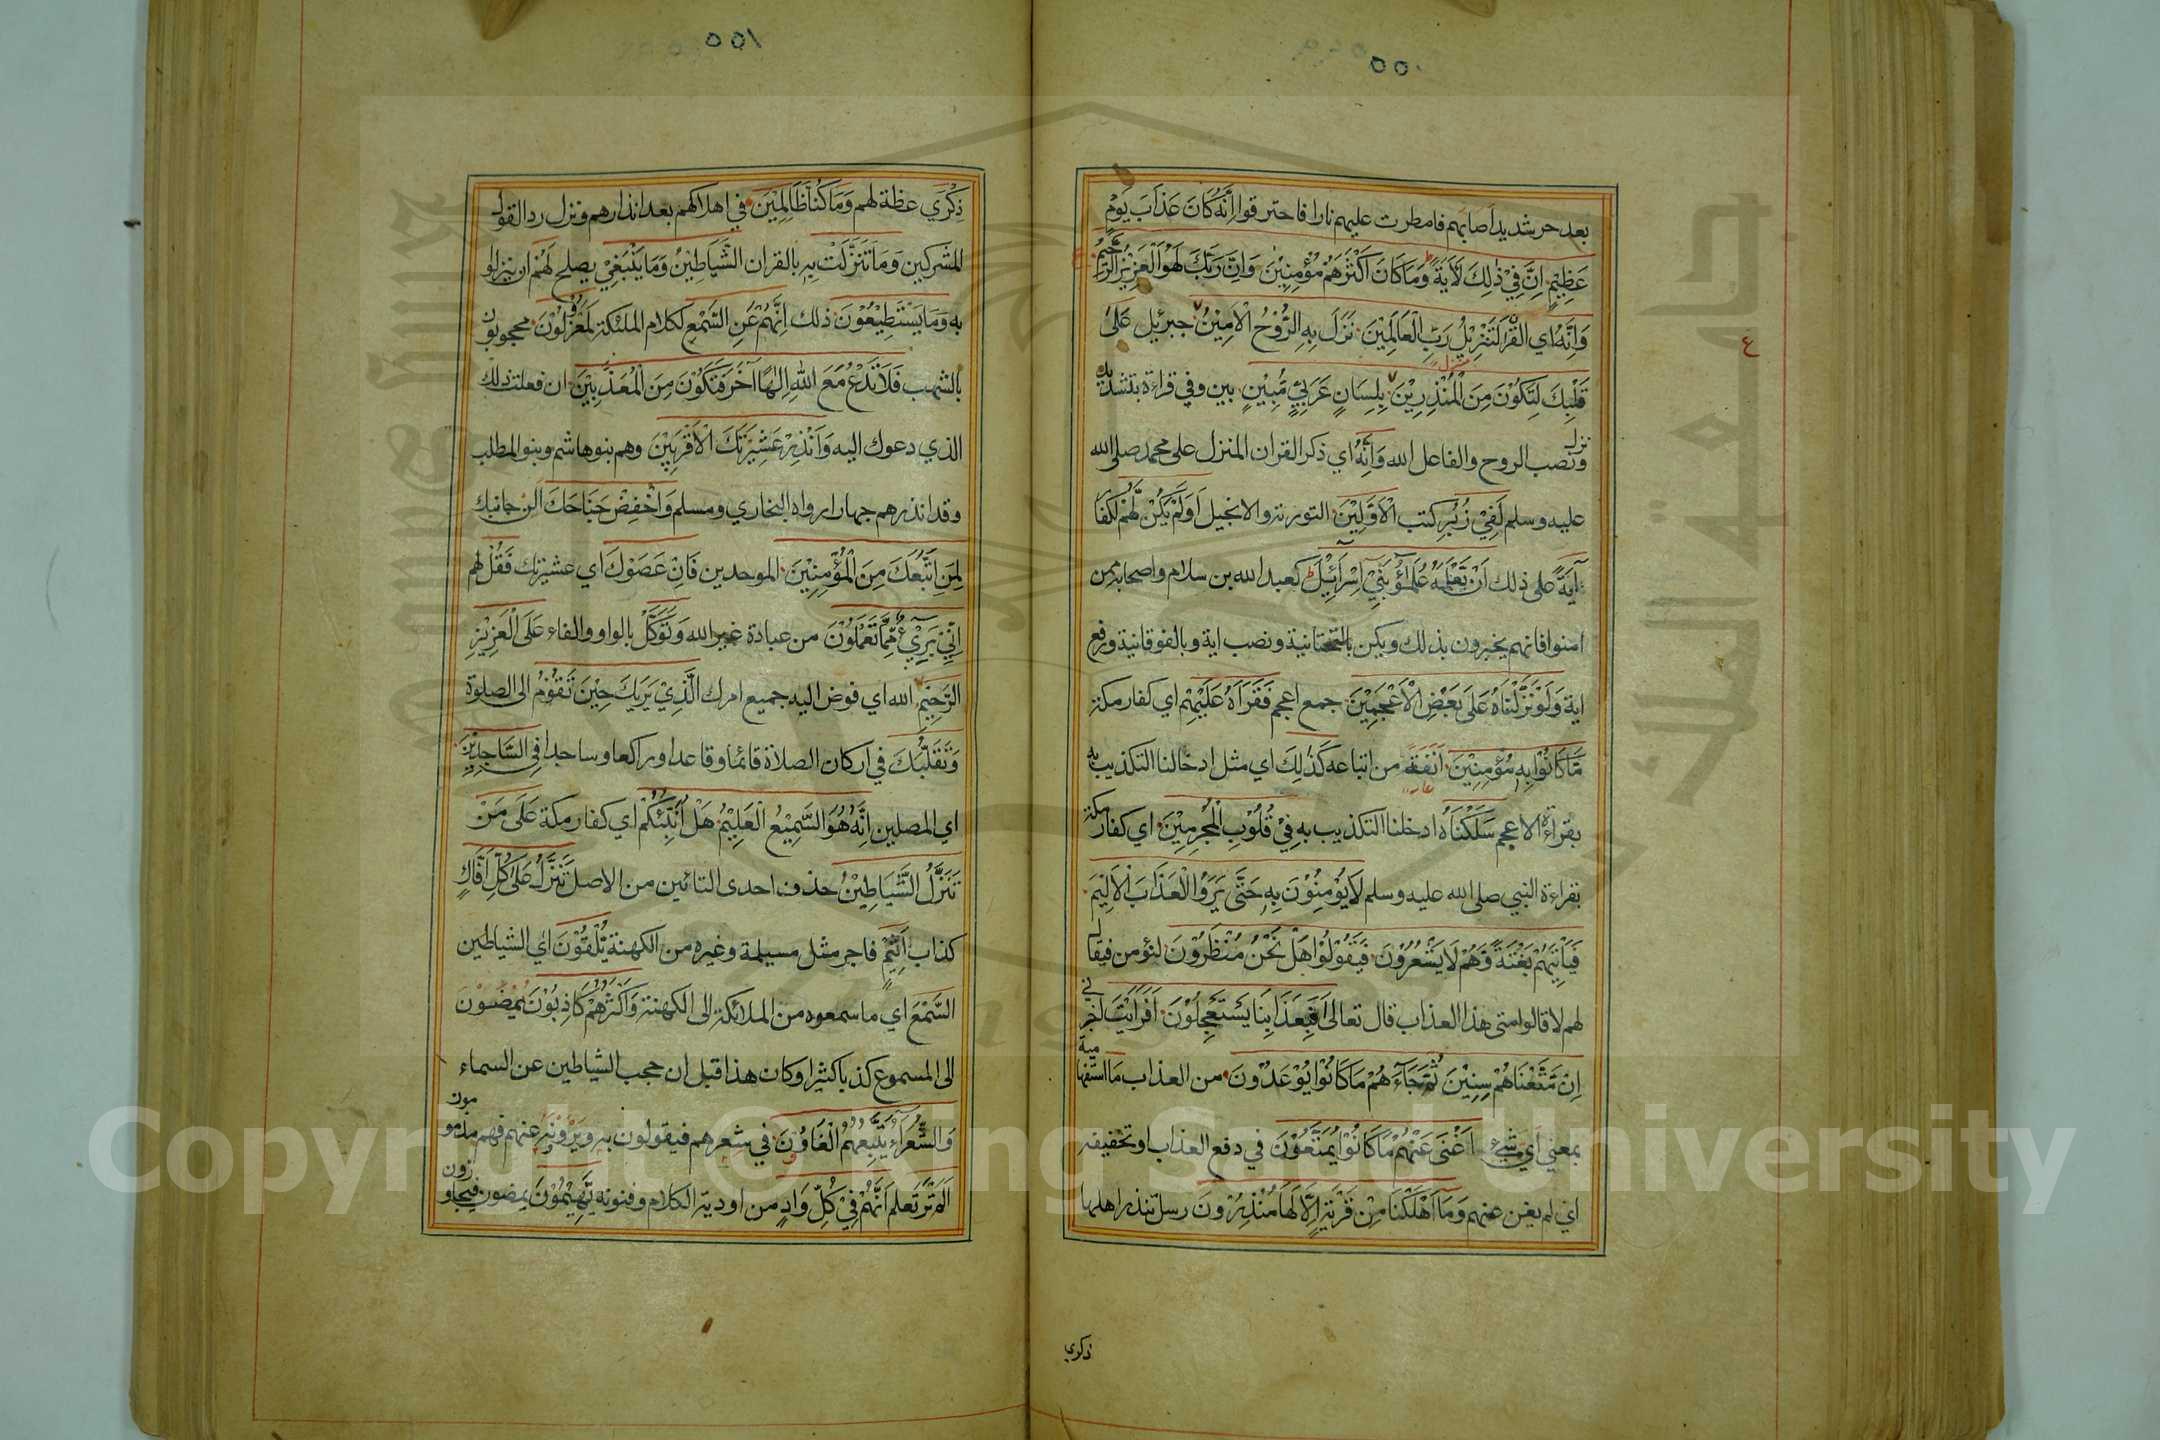 ٥٥٠
بعد حر شديد اصابهم فامطرت عليهم نارا فاحترقوا اِنَّهٗ كَانَ عَذَابَ يَوْمٍ
عَظِيْمٍ اِنَّ فِيْ ذٰلِكَ لَاٰيَةً وَمَا كَانَ اَكْثَرُهُمْ مُؤْمِنِيْنَ وَاِنَّ رَبَّكَ لَهُوَ الْعَزِيْزُ الرَّحِيْمُ
وَاِنَّهٗ اي القرآن لَتَنْزِيْلُ رَبِّ الْعَالَمِيْنَ نَزَلَ بِهِ الرُّوْحُ الْاَمِيْنُ جبرئيل عَلٰى
ع
قَلْبِكَ لِتَكُوْنَ مِنَ الْمُنْذِرِيْنَ بِلِسَانٍ عَرَبِيٍّ مُّبِيْنٍ بين وفي قراءة بتشديد
نزل ونصب الروح والفاعل الله وَاِنَّهٗ اي ذكر القران المنزل على محمد صلى الله
عليه وسلم لَفِيْ زُبُرِ كتب الْاَوَّلِيْنَ التورىة والانجيل اَوَلَمْ يَكُنْ لَّهُمْ لكفار
اٰيَةً على ذلك اَنْ يَّعْلَمَهٗ عُلَمٰٓؤُا بَنِيْٓ اِسْرَآئِيْلَ كعبد الله بن سلام واصحابه ممن
امنوا فانهم يخبرون بذلك ويكن بالتحتانية ونصب اية وبالفوقانية ورفع
اية وَلَوْ نَزَّلْنَاهُ عَلٰى بَعْضِ الْاَعْجَمِيْنَ جمع اعجم فَقَرَاَهٗ عَلَيْهِمْ اي كفار مكة
مَّا كَانُوْا بِهٖ مُؤْمِنِيْنَ انفة من اتباعه كَذٰلِكَ اي مثل ادخالنا التكذيب به
بقراءة الاعجم سَلَكْنَاهُ ادخلنا التكذيب به فِيْ قُلُوْبِ الْمُجْرِمِيْنَ اي كفار مكة
بقراءة النبي صلى الله عليه وسلم لَا يُؤْمِنُوْنَ بِهٖ حَتّٰى يَرَوُا الْعَذَابَ الْاَلِيْمَ
فَيَاْتِيَهُمْ بَغْتَةً وَّهُمْ لَا يَشْعُرُوْنَ فَيَقُوْلُوْا هَلْ نَحْنُ مُنْظَرُوْنَ لنؤمن فيقال
لهم لا قالوا متى هذا العذاب قال تعالى اَفَبِعَذَابِنَا يَسْتَعْجِلُوْنَ اَفَرَاَيْتَ اخبرني
اِنْ مَّتَّعْنَاهُمْ سِنِيْنَ ثُمَّ جَآءَهُمْ مَا كَانُوْا يُوْعَدُوْنَ من العذاب مَا استفهامية
بمعنى اي شيء اَغْنٰى عَنْهُمْ مَّا كَانُوْا يُمَتَّعُوْنَ في دفع العذاب او تخفيفه
اي لم يغن عنهم وَمَآ اَهْلَكْنَا مِنْ قَرْيَةٍ اِلَّا لَهَا مُنْذِرُوْنَ رسل تنذر اهلها
ذكرى
٥٥١
ذِكْرٰى عظة لهم وَمَا كُنَّا ظَالِمِيْنَ في اهلاكهم بعد انذارهم ونزل رد القول
المشركين وَمَا تَنَزَّلَتْ بِهِ بالقران الشَّيَاطِيْنُ وَمَا يَنْبَغِيْ يصلح لَهُمْ ان ينزلوا
به وَمَا يَسْتَطِيْعُوْنَ ذلك اِنَّهُمْ عَنِ السَّمْعِ لكلام الملئكة لَمَعْزُوْلُوْنَ محجوبون
بالشهب فَلَا تَدْعُ مَعَ اللهِ اِلٰهًا اٰخَرَ فَتَكُوْنَ مِنَ الْمُعَذَّبِيْنَ ان فعلت ذلك
الذي دعوك اليه وَاَنْذِرْ عَشِيْرَتَكَ الْاَقْرَبِيْنَ وهم بنو هاشم وبنو المطلب
وقد انذرهم جهارا رواه البخاري ومسلم وَاخْفِضْ جَنَاحَكَ الن جانبك
لِمَنِ اتَّبَعَكَ مِنَ الْمُؤْمِنِيْنَ الموحدين فَاِنْ عَصَوْكَ اي عشيرتك فَقُلْ لهم
اِنِّيْ بَرِيْٓءٌ مِّمَّا تَعْمَلُوْنَ من عبادة غير الله وَتَوَكَّلْ بالواو والفاء عَلَى الْعَزِيْزِ
الرَّحِيْمِ الله اي فوض اليه جميع امرك الَّذِيْ يَرٰيكَ حِيْنَ تَقُوْمُ الى الصلوة
وَتَقَلُّبَكَ في اركان الصلاة قائما وقاعدا وراكعا وساجدا فِي السَّاجِدِيْنَ
اي المصلين اِنَّهٗ هُوَ السَّمِيْعُ الْعَلِيْمُ هَلْ اُنَبِّئُكُمْ اي كفار مكة عَلٰى مَنْ
تَنَزَّلُ الشَّيَاطِيْنُ حذف احدى التائين من الاصل تَنَزَّلُ عَلٰى كُلِّ اَفَّاكٍ
كذاب اَثِيْمٍ فاجر مثل مسيلمة وغيره من الكهنة يُّلْقُوْنَ اي الشياطين
السَّمْعَ اي ما سمعوه من الملائكة الى الكهنة وَاَكْثَرُهُمْ كَاذِبُوْنَ يضمون
الى المسموع كذبا كثيرا وكان هذا قبل ان حجب الشياطين عن السماء
وَالشُّعَرَآءُ يَتَّبِعُهُمُ الْغَاوٗنَ في شعرهم فيقولون به ويروونه عنهم فهم مذمومون
اَلَمْ تَرَ تعلم اَنَّهُمْ فِيْ كُلِّ وَادٍ من اودية الكلام وفنونه يَّهِيْمُوْنَ يمضون فيجاوزون
Copyright © King Saud University